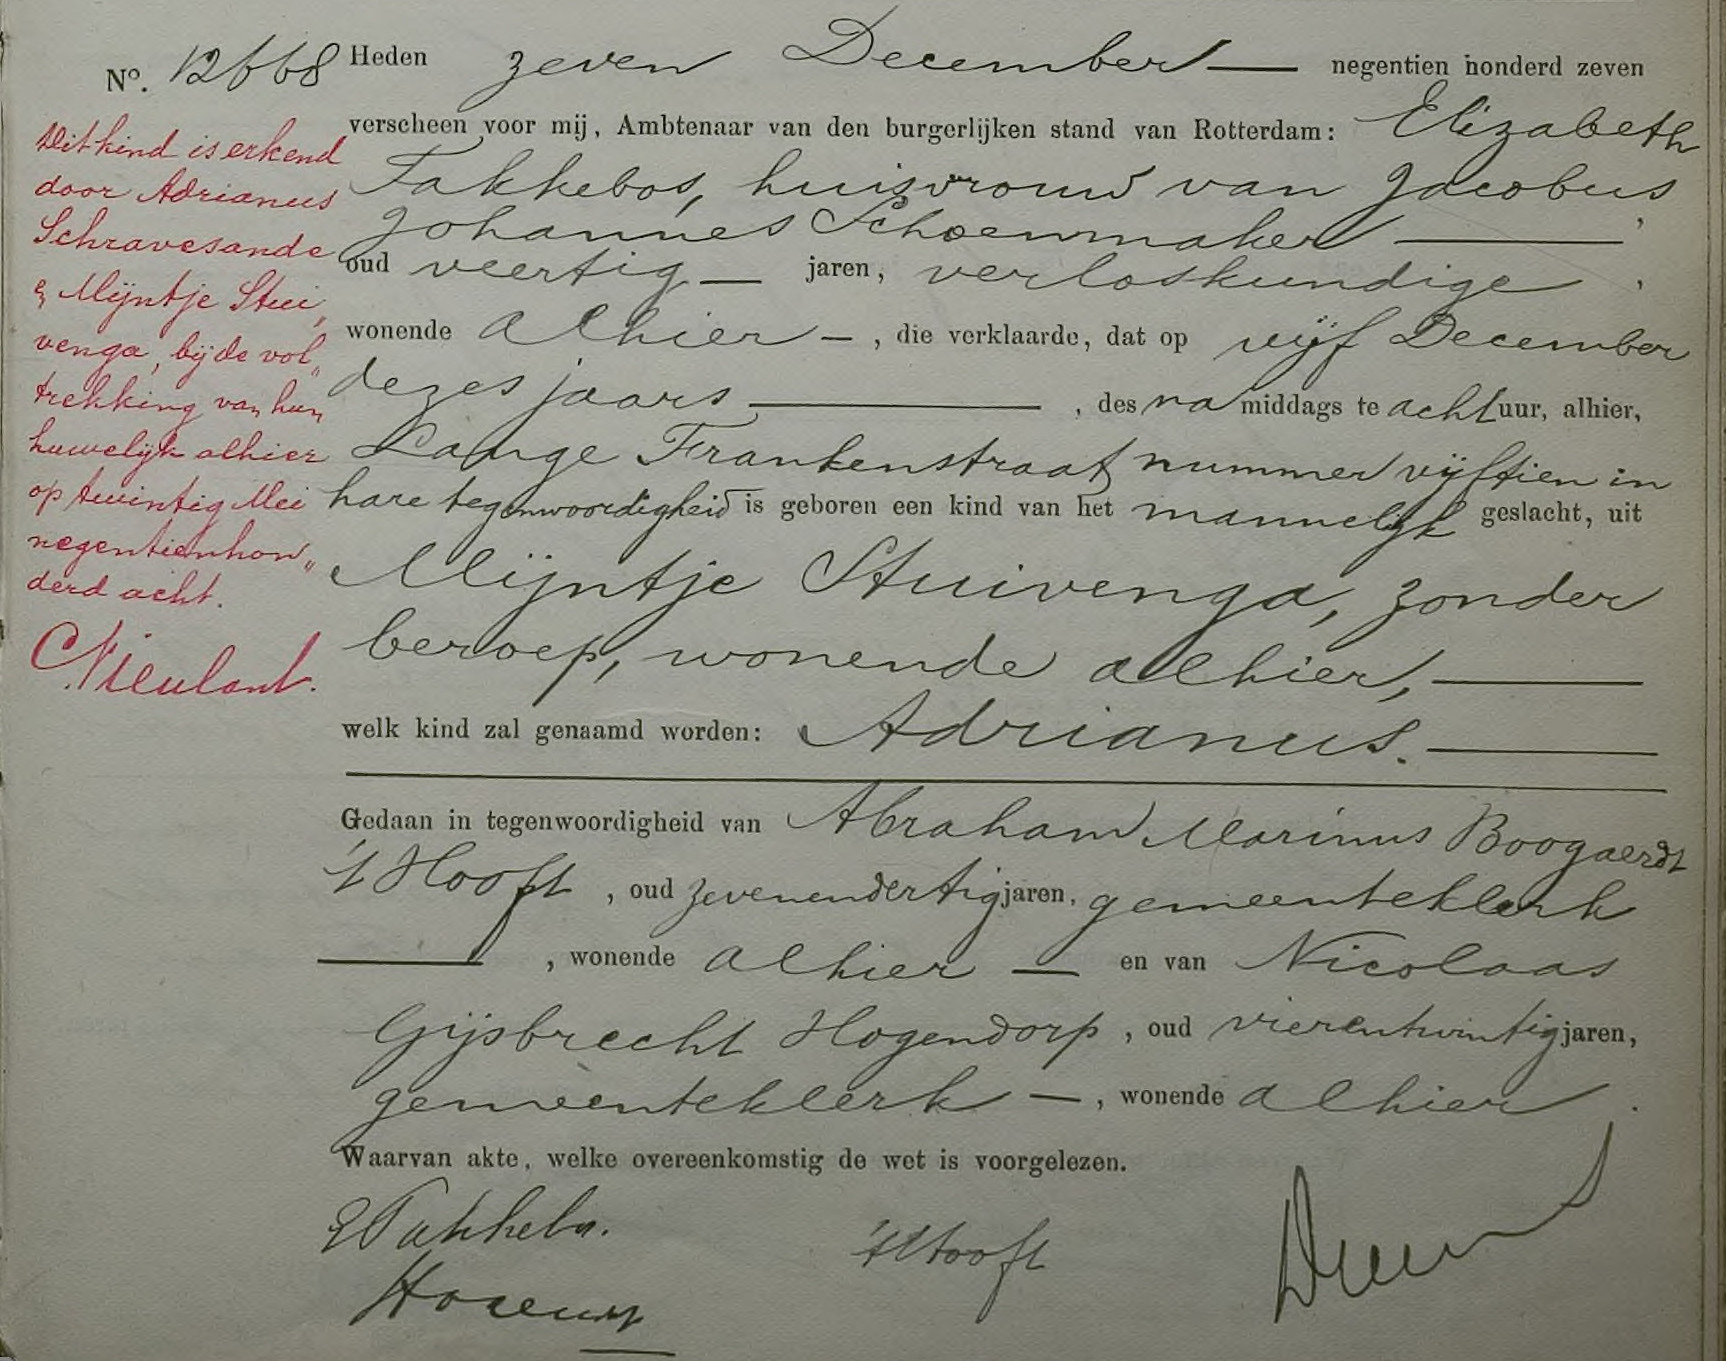 No. 12668
Heden zeven December negentien honderd zeven
verscheen voor mij, Ambtenaar van den burgerlijken stand van Rotterdam: Elizabeth
Takkebos, huisvrouw van Jacobus
Johannes Schoenmaker,
oud veertig jaren, verloskundige,
wonende alhier, die verklaarde, dat op vijf December
dezes jaars, des namiddags te acht uur, alhier,
Lange Frankenstraat nummer vijftien in
hare tegenwoordigheid is geboren een kind van het mannelijk geslacht, uit
Mijntje Stuivenga, zonder
beroep, wonende alhier,
welk kind zal genaamd worden: Adrianus.
Gedaan in tegenwoordigheid van Abraham Marinus Boogaerdt
't Hooft, oud zevenendertig jaren, gemeenteklerk
, wonende alhier en van Nicolaas
Gijsbrecht Hogendorp, oud vierentwintig jaren,
gemeenteklerk, wonende alhier.
Waarvan akte, welke overeenkomstig de wet is voorgelezen.
't Hooft
Dit kind is erkend
door Adrianus
Schravesande
& Mijntje Stui„
venga, bij de vol„
trekking van hun
huwelijk alhier
op twintig Mei
negentienhon„
derd acht.